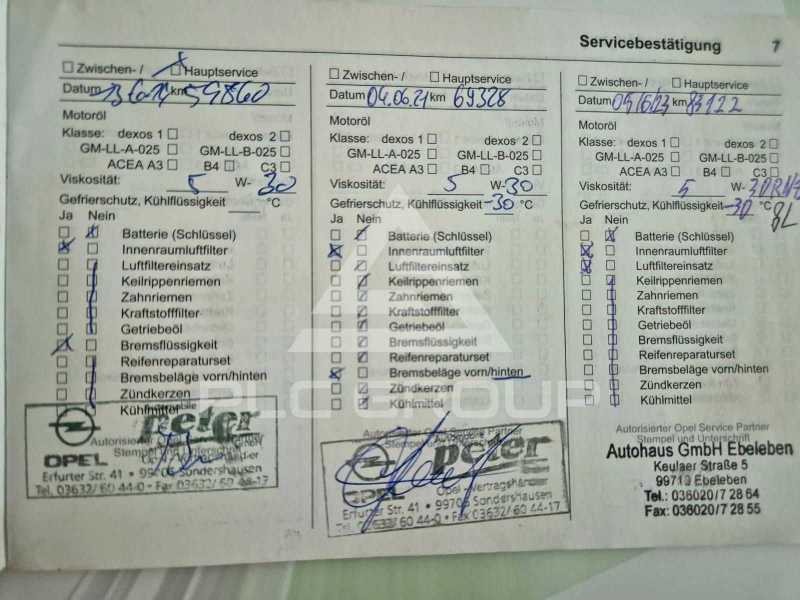 Servicebestätigung 7
Zwischen-/ Hauptservice
Datum km 59860
Motoröl
Klasse: dexos 1 dexos 2
GM-LL-A-025 GM-LL-B-025
ACEA A3 B4 C3
Viskosität: 5 W-30
Gefrierschutz, Kühlflüssigkeit °C
Ja Nein
Batterie (Schlüssel)
Innenraumluftfilter
Luftfiltereinsatz
Keilrippenriemen
Zahnriemen
Kraftstofffilter
Getriebeöl
Bremsflüssigkeit
Reifenreparaturset
Bremsbeläge vorn/hinten
Zündkerzen
Kühlmittel
peter
OPEL
Erfurter Str. 41 • 99706 Sondershausen
Tel. 03632/ 60 44-0 • Fax 03632/ 60 44-17
Zwischen-/ Hauptservice
Datum 04.06.21 km 69328
Motoröl
Klasse: dexos 1 dexos 2
GM-LL-A-025 GM-LL-B-025
ACEA A3 B4 C3
Viskosität: 5 W-30
Gefrierschutz, Kühlflüssigkeit -30 °C
Ja Nein
Batterie (Schlüssel)
Innenraumluftfilter
Luftfiltereinsatz
Keilrippenriemen
Zahnriemen
Kraftstofffilter
Getriebeöl
Bremsflüssigkeit
Reifenreparaturset
Bremsbeläge vorn/hinten
Zündkerzen
Kühlmittel
Autorisierter Opel Service Partner
peter
OPEL Opel -Vertragshändler
Erfurter Str. 41 • 99706 Sondershausen
Tel. 03632/ 60 44-0 • Fax 03632/ 60 44-17
Zwischen-/ Hauptservice
Datum km 83122
Motoröl
Klasse: dexos 1 dexos 2
GM-LL-A-025 GM-LL-B-025
ACEA A3 B4 C3
Viskosität: 5 W-30
Gefrierschutz, Kühlflüssigkeit -30 °C
8L
Ja Nein
Batterie (Schlüssel)
Innenraumluftfilter
Luftfiltereinsatz
Keilrippenriemen
Zahnriemen
Kraftstofffilter
Getriebeöl
Bremsflüssigkeit
Reifenreparaturset
Bremsbeläge vorn/hinten
Zündkerzen
Kühlmittel
Autorisierter Opel Service Partner
Stempel und Unterschrift
Autohaus GmbH Ebeleben
Keulaer Straße 5
99713 Ebeleben
Tel.: 036020/7 28 64
Fax: 036020/7 28 55
PLC GROUP